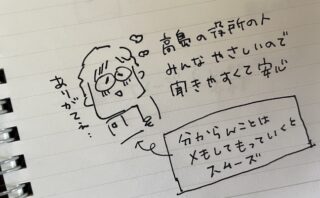 高島の役所の人
みんなやさしいので
聞きやすくて安心
ありがてぇ…
分からんことは
メもしてもっていくと
スムーズ